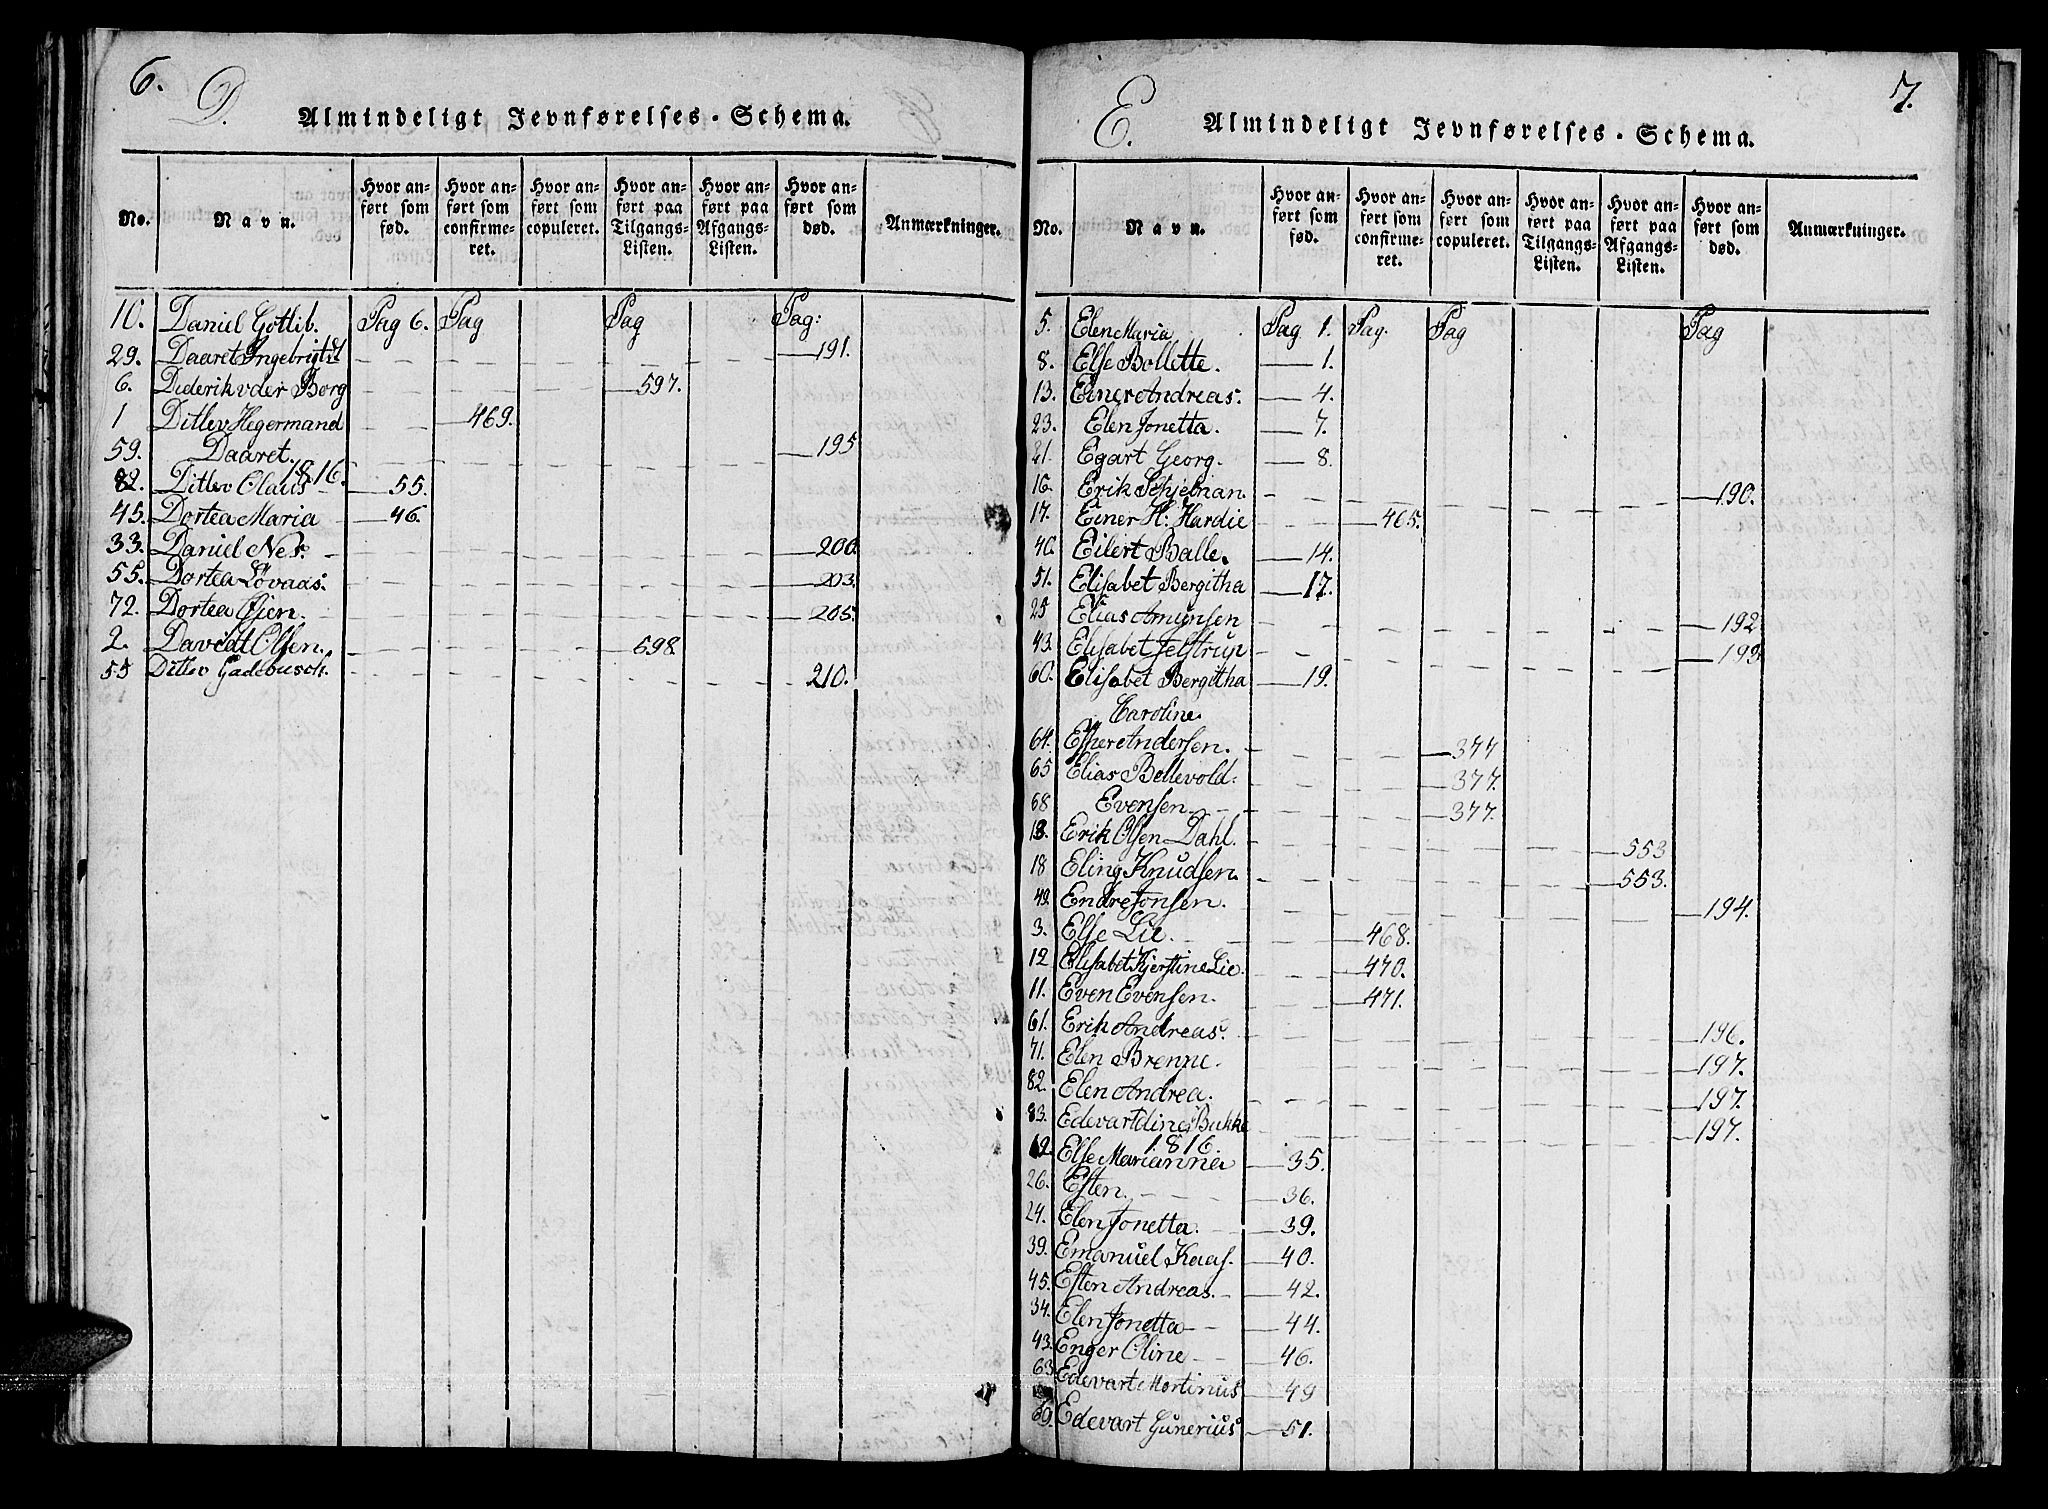 6.
D.
Almindeligt Jevnførelses-Schema.
No. Navn. Hvor anført som fød. Hvor anført som confirmeret. Hvor anført som copuleret. Hvor anført paa Tilgangs-Listen. Hvor anført paa Afgangs-Listen. Hvor anført som død. Anmærkninger.
10. Daniel Gotlib. Pag 6. Pag Pag Pag:
29. Daaret Ingebrigtdt 191.
6. Diderik v der Borg 597.
1 Ditlev Hegermand 469.
59. Daaret. 195
1816.
82. Ditlev Olaus 55.
45. Dortea Maria 46.
33. Daniel Nes. 200.
55. Dortea Lovaas. 203.
72. Dortea Øien. 205.
2. Davidt Olsen. 598.
55 Ditlev Gadebusch. 210.
7.
E.
Almindeligt Jevnførelses-Schema.
No. Navn. Hvor anført som fød. Hvor anført som confirmeret. Hvor anført som copuleret. Hvor anført paa Tilgangs-Listen. Hvor anført paa Afgangs-Listen. Hvor anført som død. Anmærkninger.
5. Elen Maria Pag 1. Pag. Pag Pag
8. Else Bollette. 1.
13. Einer Andreas. 4.
23. Elen Jonetta. 7.
21. Egart Georg. 8.
16. Erik Schjelnan. 190.
17. Einer H: Hardie 465.
40. Eilert Balle. 14.
51. Elisabet Bergitha 17.
25 Elias Amunsen 192
43. Elisabet Jelstrup 193
60. Elisabet Bergitha 19.
Caroline.
64. Esper Andersen. 377
65 Elias Bellevold: 377.
68 Evensen. 377.
13. Erik Olsen Dahl. 553
18 Eling Knudsen. 553.
49. Endre Jonsen. 194.
3. Else Lie. 468.
12 Elisabet Kjerstine Lie. 470.
11. Even Evensen. 471.
61. Erik Andreas. 196.
71. Elen Brenne. 197.
82. Elen Andrea. 197.
83. Edevartdine Bukke 197.
1816.
12. Else Marianne 35.
26. Esten. 36.
24. Elen Jonetta. 39.
39. Emanuel Kaas. 40.
45. Esten Andreas. 42.
34. Elen Jonetta 44.
43. Enger Oline 46.
63 Edevart Mortinus 49
69. Edevart Gunerius 51.